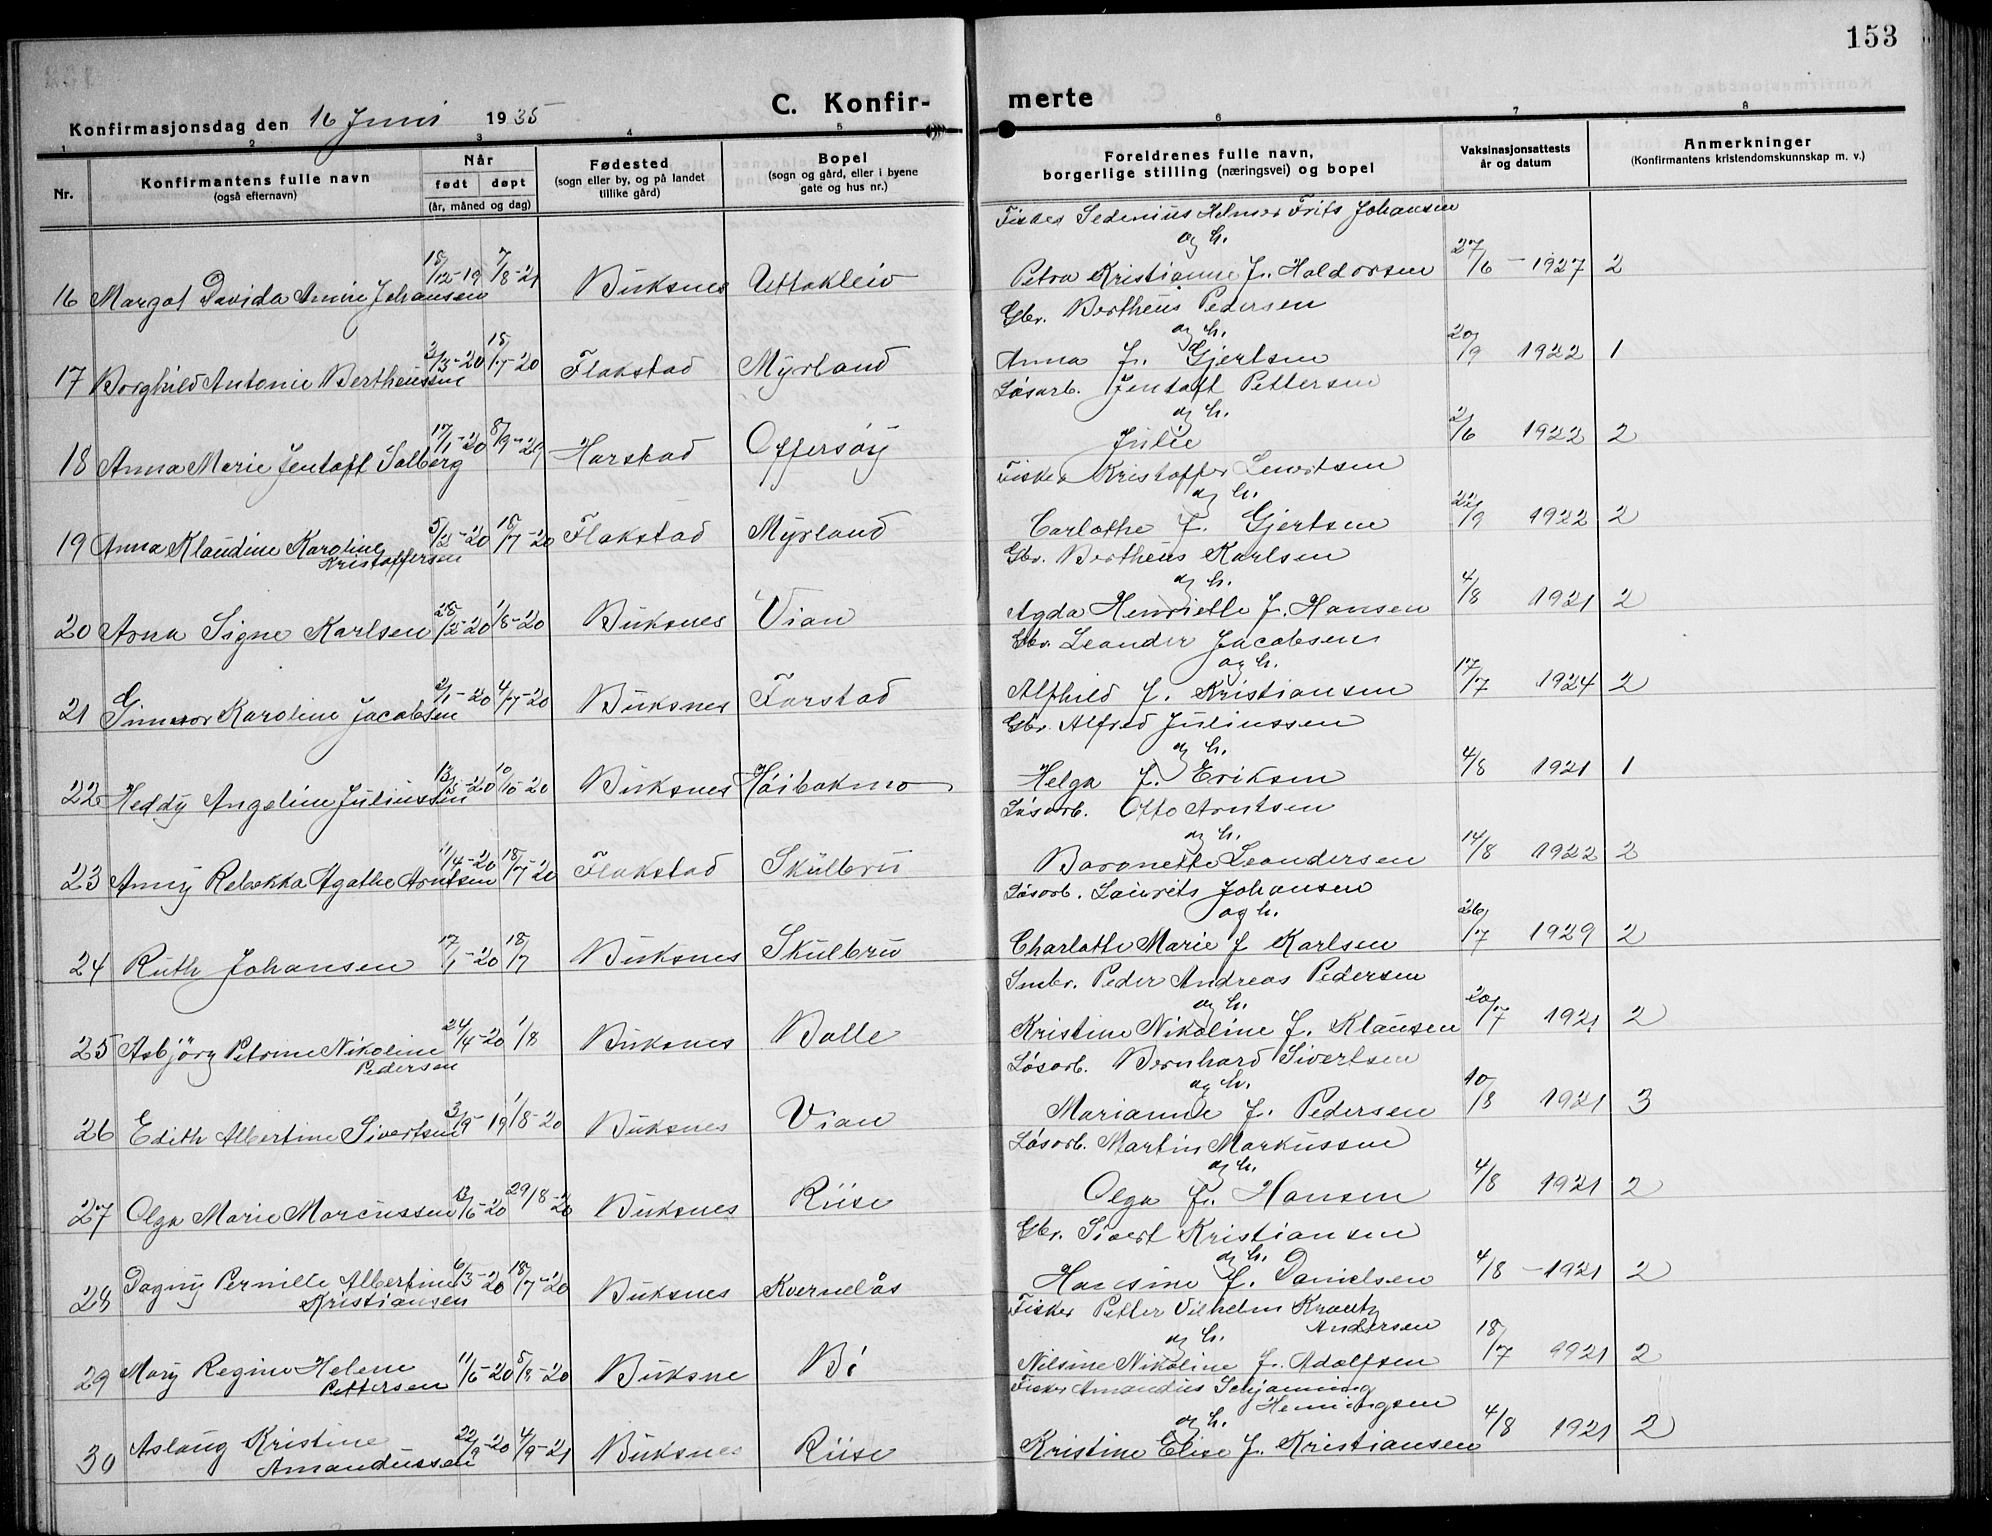 153
Konfirmasjonsdag den 16 Juni 1935
C. Konfir-
merte
1 2 3 4 5 6 7 8
Nr.
Konfirmantens fulle navn
(også efternavn)
Når
født døpt
(år, måned og dag)
Fødested
(sogn eller by, og på landet
tillike gård)
Bopel
(sogn og gård, eller i byene
gate og hus nr.)
Foreldrenes fulle navn,
borgerlige stilling (næringsvei) og bopel
Vaksinasjonsattests
år og datum
Anmerkninger
(Konfirmantens kristendomskunnskap m. v.)
Fisker Sedenius Helmer Frits Johansen
og h.
16 Margot Davida Annie Johansen 18/12-19 7/8-21 Buksnes Uttakleiv Petra Kristianne f. Haldorsen 27/6-1927 2
Gbr. Bertheus Pedersen
og h.
17 Borghild Antonie Bertheussen 2/3-20 18/7-20 Flakstad Myrland Anna f. Gjertsen 20/9 1922 1
Løsarb. Jentoft Pettersen
og h.
18 Anna Marie Jentoft Solberg 17/1-20 8/9-29 Harstad Offersøy Julie 2/6 1922 2
Fisker Kristoffer Lenertsen
og h.
19 Anna Klaudine Karoline 5/2-20 18/7-20 Flakstad Myrland Carlothe f. Gjertsen 22/9 1922 2
Kristoffersen
Gbr. Bertheus Karlsen
og h.
20 Arna Signe Karlsen 28/2-20 1/8-20 Buksnes Vian Agda Henrielle f. Hansen 4/8 1921 2
Gbr. Leander Jacobsen
og h.
21 Gunvor Karoline Jacobsen 2/1-20 4/7-20 Buksnes Farstad Alfhild f. Kristiansen 17/7 1924 2
Gbr. Alfred Juliussen
og h.
22 Heddy Angeline Juliussen 13/5-20 10/10-20 Buksnes Høibakmo Helga f. Eriksen 4/8 1921 1
Løsarb. Otto Arntsen
og h.
23 Anny Rebekka Agathe Arntsen 11/4-20 18/7-20 Flakstad Skulbru Baronette Leandersen 14/8 1922 2
Løsarb. Laurits Johansen
og h.
24 Ruth Johansen 17/1-20 18/7 Buksnes Skulbru Charlotte Marie f Karlsen 26/7 1929 2
Smbr. Peder Andreas Pedersen
og h.
25 Asbjörg Petrine Nikoline 24/4-20 1/8 Buksnes Balle Kristine Nikoline f. Klausen 20/7 1921 2
Pedersen
Løsarb. Bernhard Sivertsen
og h.
26 Edith Albertine Sivertsen 3/9-19 1/8-20 Buksnes Vian Marianne f. Pedersen 10/8 1921 3
Løsarb. Martin Markussen
og h.
27 Olga Marie Marcussen 13/6-20 29/8-20 Buksnes Riise Olga f. Hansen 4/8 1921 2
Gbr. Sivert Kristiansen
og h.
28 Dagny Pernille Albertine 6/3-20 18/7-20 Buksnes Kvernelås Hansine f. Danielsen 4/8-1921 2
Kristiansen
Fisker Petter Vilhelm Krautz
Andersen
og h.
29 Mary Regine Helene 11/6-20 5/8-20 Buksne Bö Nilsine Nikoline f. Adolfsen 18/7 1921 2
Pettersen
Fisker Amandus Schjønning
Henningsen
og h.
30 Aslaug Kristine 22/9-20 4/9-21 Buksnes Riise Kristine Elise f. Kristiansen 4/8 1921 2
Amandussen